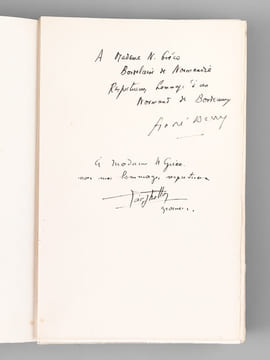 A Madame N. Gréco
Bordelaise de Normandie
Respectueux hommage d'un
Normand de Bordeaux
André Berry
A Madame N Gréco
avec mes hommages respectueux